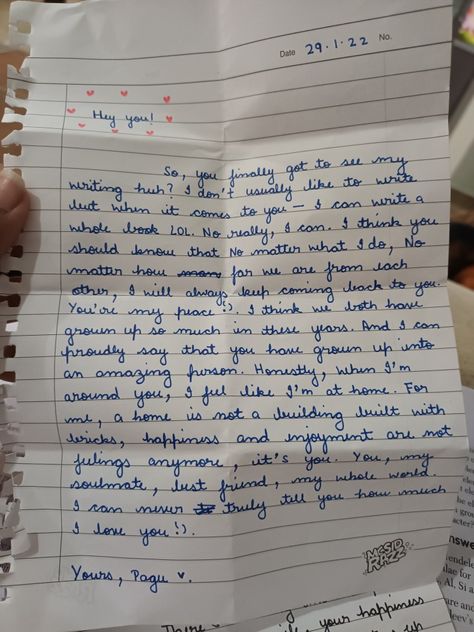 Date 29.1.22 No.
Hey you!
So, you finally got to see my
writing huh? I don't usually like to write
but when it comes to you – I can write a
whole book LOL. No really, I can. I think you
should know that No matter what I do, No
matter how far we are from each
other, I will always keep coming back to you.
You're my peace :). I think we both have
grown up so much in these years. And I can
proudly say that you have grown up into
an amazing person. Honestly, when I'm
around you, I feel like I'm at home. For
me, a home is not a building built with
bricks, happiness and enjoyment are not
feelings anymore, it's you. You, my
soulmate, best friend, my whole world.
I can never truly tell you how much
I love you :).
MCSID RAZZ
Yours, Pagu ♥.
There
your happiness
nswe